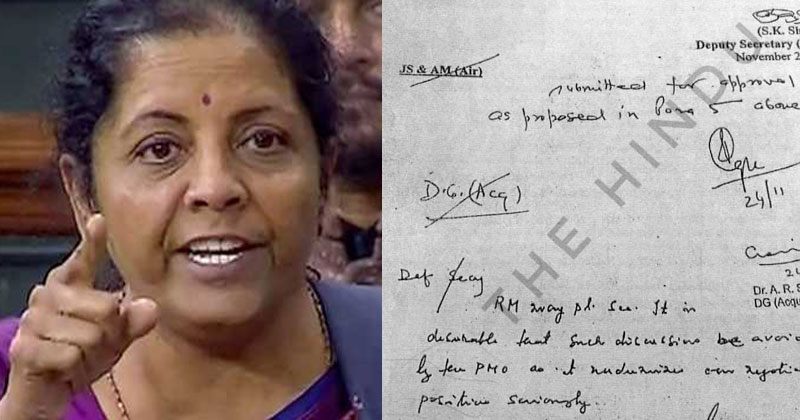 (S.K. Sh
Deputy Secretary (
November 2
JS & AM (Air)
submitted for approval
as proposed in Para 5 above
24/11
D.G. (Acq)
THE HINDU
2
Dr. A. R. S
DG (Acqu
Def Secy
RM may pl. see. It is
desirable that such discussions be avoid
by the PMO as it undermines our negoti
position seriously.